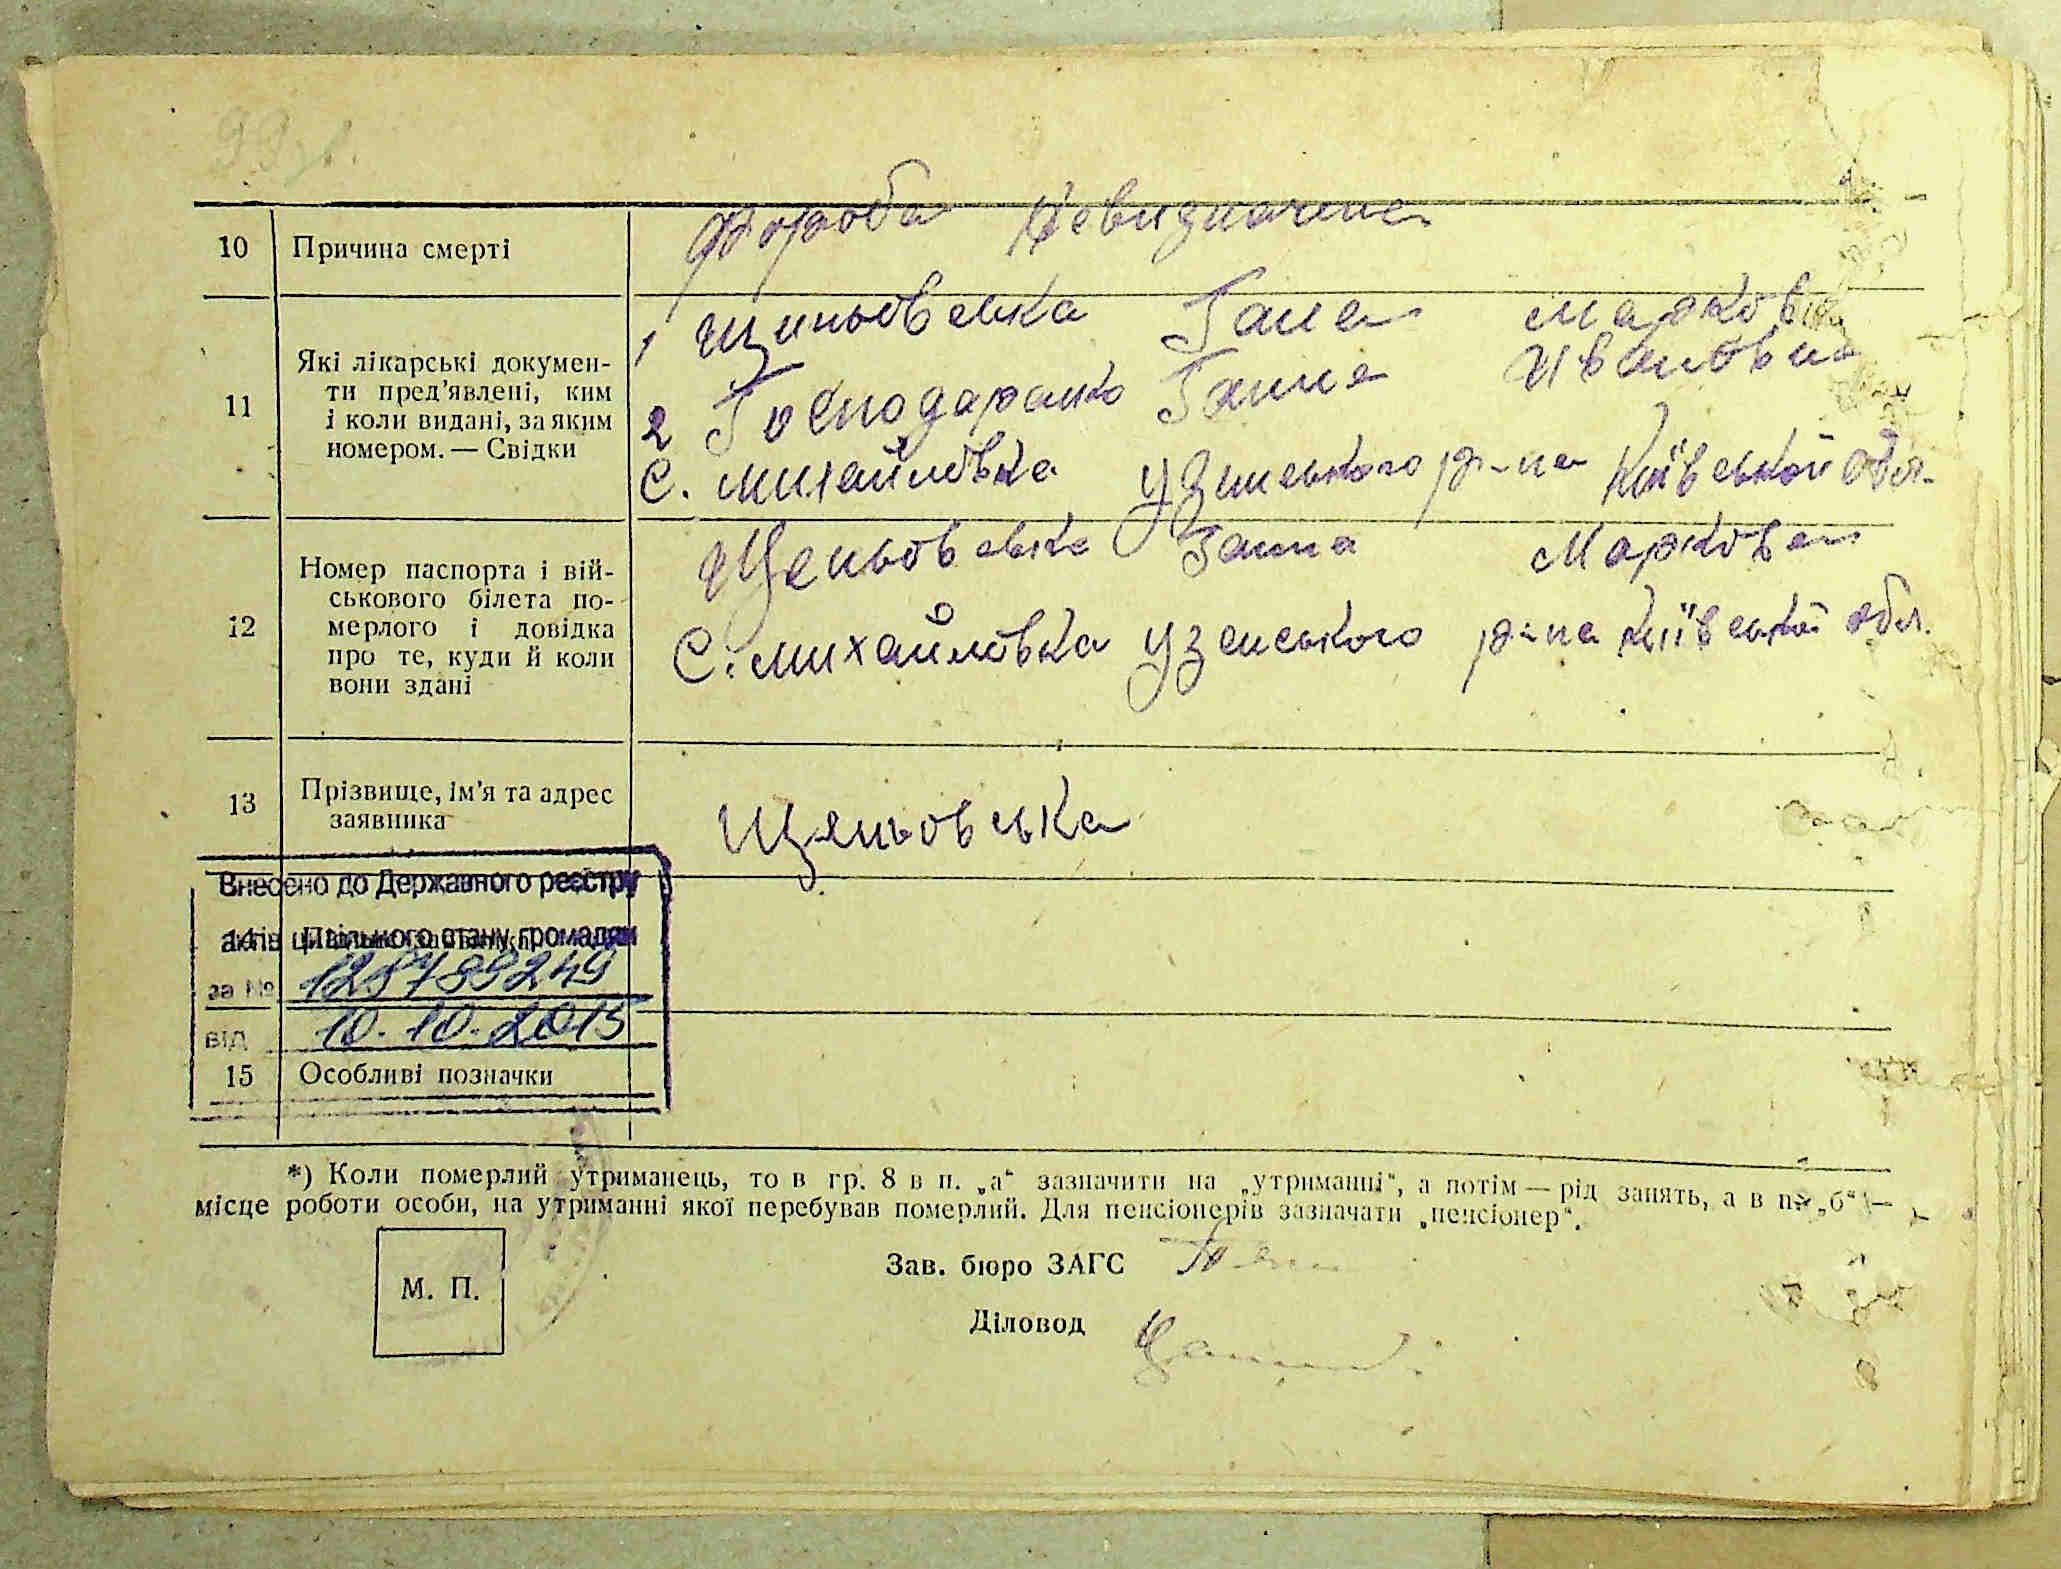 10 Причина смерті
Хороба Невизначена
11 Які лікарські докумен-
ти пред'явлені, ким
і коли видані, за яким
номером. — Свідки
1 Щиньовська Гана Марковн
2 Господаренко Ганна Ивановна
С. Михайловка Узинського р-на Київської обл.
12 Номер паспорта і вій-
ськового білета по-
мерлого і довідка
про те, куди й коли
вони здані
Щеньовська Ганна Маркова
С. Михайловка Узенського р-на Київської обл.
13 Прізвище, ім'я та адрес
заявника
Щеньовська
Внесено до Державного реєстру
актів цивільного стану громадян
за № 128789249
від 10.10.2015
15 Особливі позначки
*) Коли померлий утриманець, то в гр. 8 в п. „а“ зазначити на „утриманні“, а потім — рід занять, а в п. „б“ —
місце роботи особи, на утриманні якої перебував померлий. Для пенсіонерів зазначати „пенсіонер“.
М. П.
Зав. бюро ЗАГС
Діловод